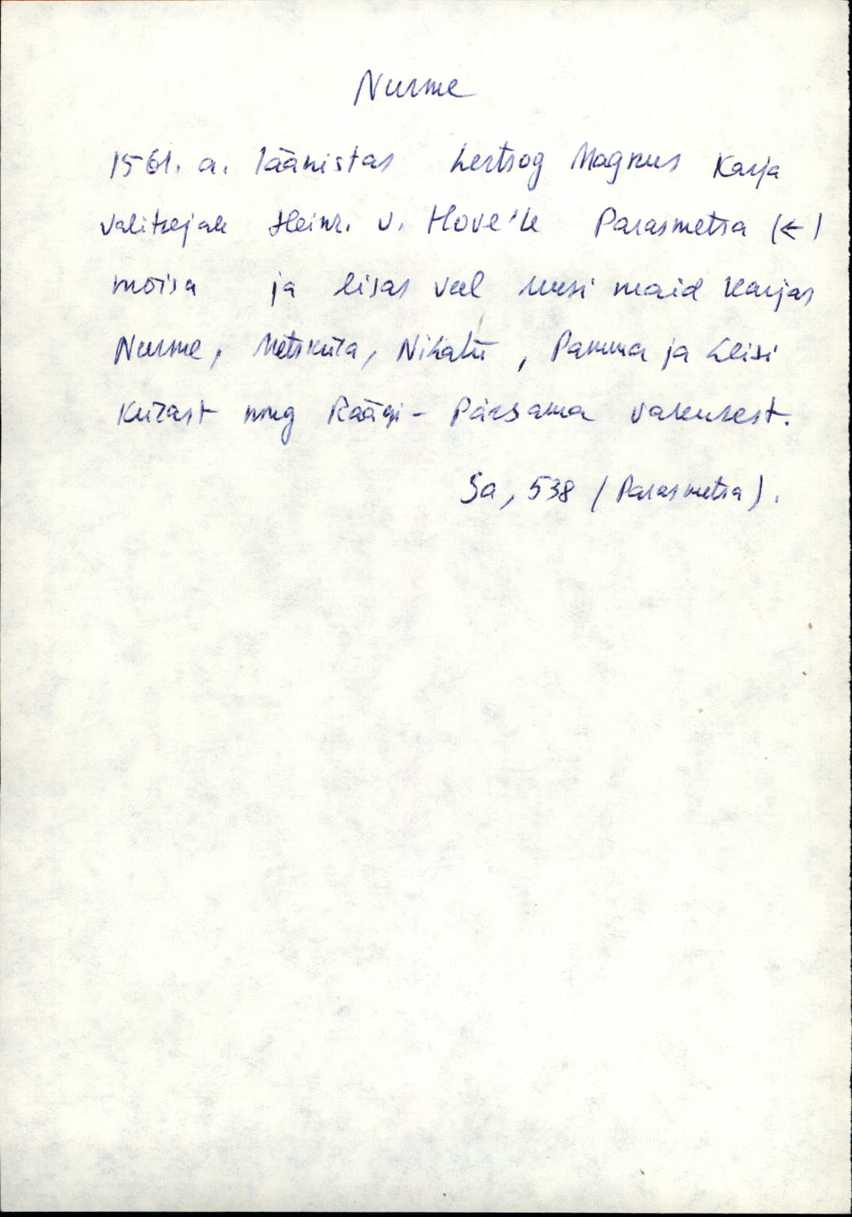 Nurme
1561. a. läänistas hertsog Magnus Karja
valitsejale Heinr. v. Hove'le Parasmetsa (←)
mõisa ja lisas veel uusi maid Karjas
Nurme, Metsküla, Nihatu, Pamma ja Leisi
külast ning Räägi-Pärsama vakusest.
Sa, 538 (Parasmetsa).